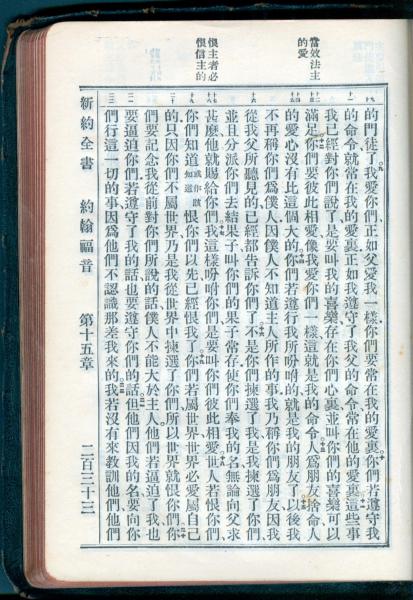 當效法主
的愛
恨主者必
恨信主的
的門徒了我愛你們正如父愛我一樣你們要常在我的愛裏你們若遵守我
的命令就常在我的愛裏正如我遵守了我父的命令常在他的愛裏這些事
我已經對你們說了是要叫我的喜樂存在你們心裏並叫你們的喜樂可以
滿足你們要彼此相愛像我愛你們一樣這就是我的命令人爲朋友捨命人
的愛心沒有比這個大的你們若遵行我所吩咐的就是我的朋友了以後我
不再稱你們爲僕人因僕人不知道主人所作的事我乃稱你們爲朋友因我
從我父所聽見的已經都告訴你們了不是你們揀選了我是我揀選了你們
並且分派你們去結果子叫你們的果子常存使你們奉我的名無論向父求
甚麽他就賜給你們我這樣吩咐你們是要叫你們彼此相愛世人若恨你們
你們知道或作該知道恨你們以先已經恨我了你們若屬世界世界必愛屬自己
的只因你們不屬世界乃是我從世界中揀選了你們所以世界就恨你們你
們要記念我從前對你們所說的話僕人不能大於主人他們若逼迫了我也
要逼迫你們若遵守了我的話也要遵守你們的話但他們因我的名要向你
們行這一切的事因爲他們不認識那差我來的我若沒有來教訓他們他們
新約全書 約翰福音 第十五章 二百三十三